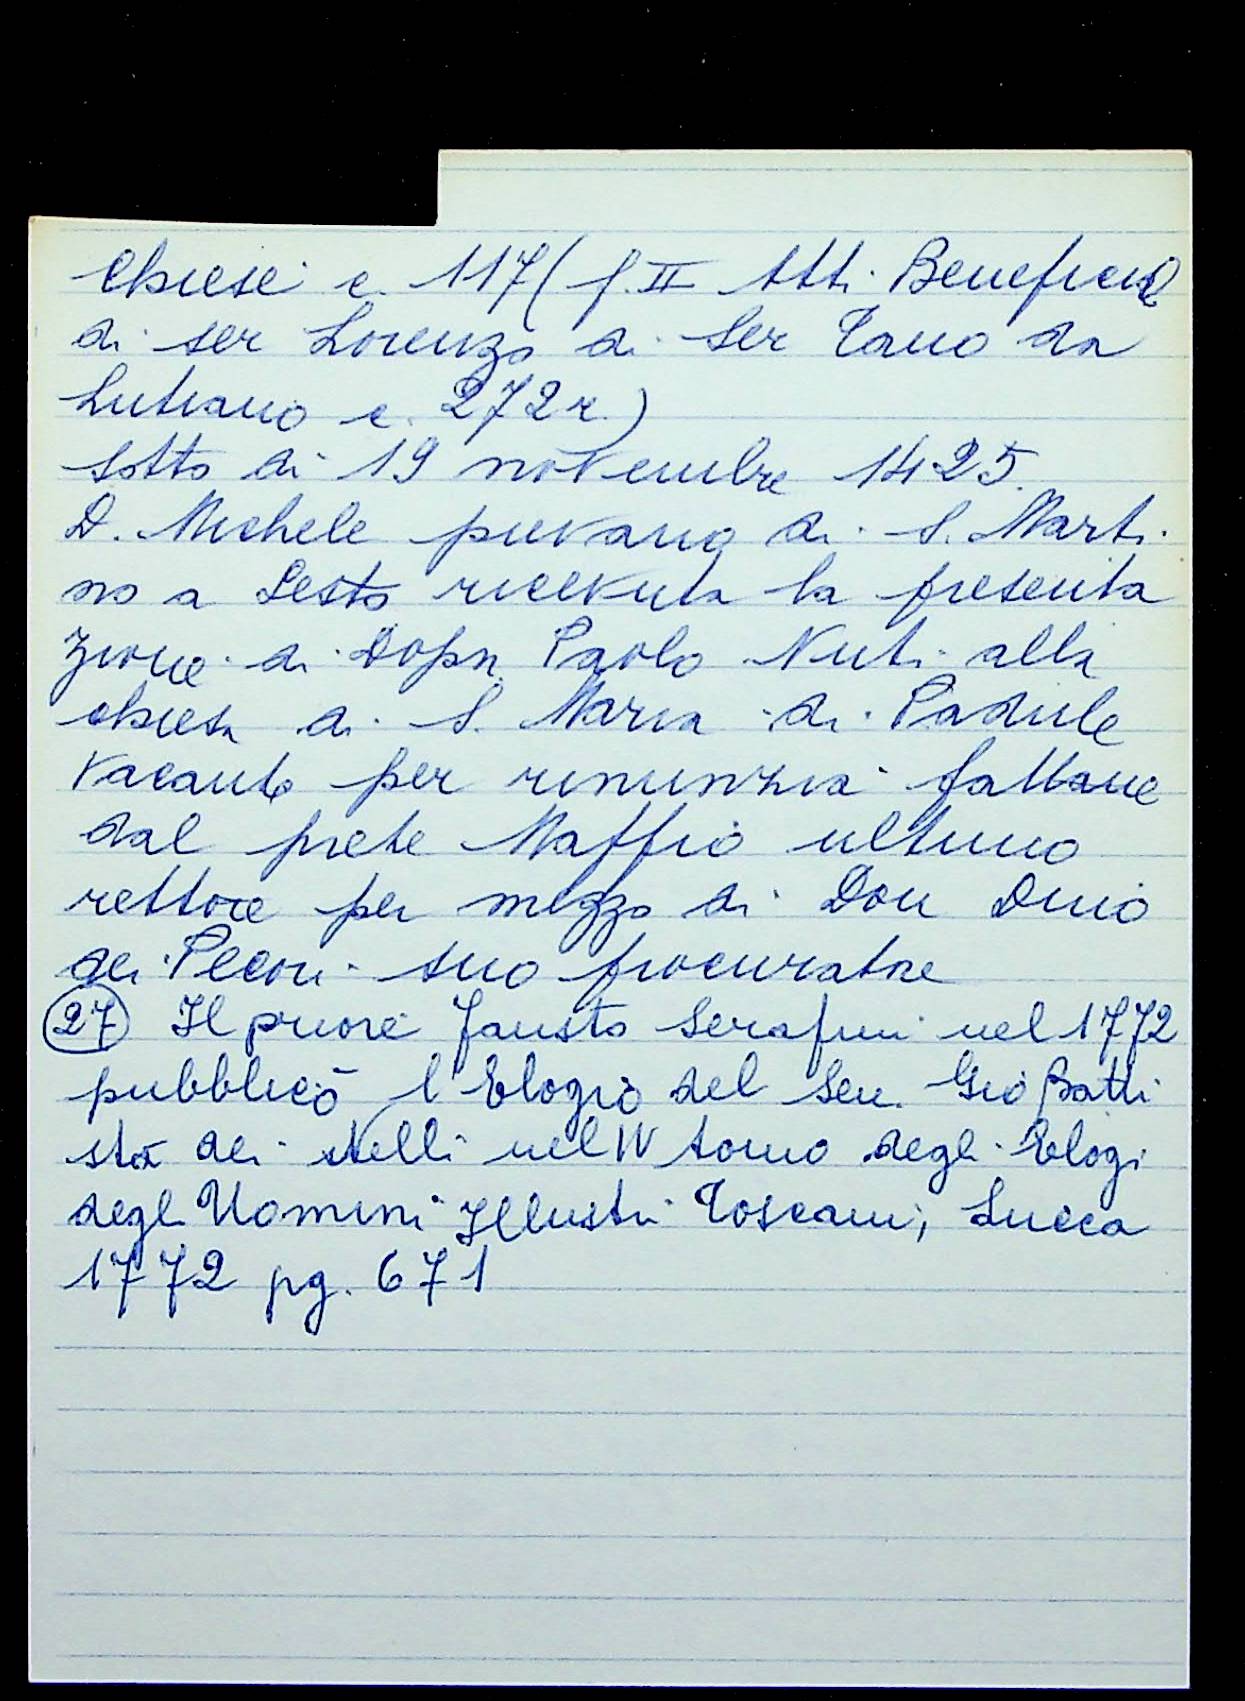 Chiese c. 117 (f. II Atti Beneficial
di ser Lorenzo di Ser Tano da
Lutiano c. 272 r.)
sotto di 19 novembre 1425.
D. Michele pievano di S. Marti
no a Sesto ricevuta la presenta
zione di Paolo Nuti alla
chiesa di S. Maria di Padule
vacante per rinunzia fattane
dal prete Maffio ultimo
rettore per mezzo di Don Dino
dei Pecori suo procuratore
(27) Il priore Fausto Serafini nel 1772
pubblicò l'Elogio del Sen. Gio Batti
sta dei Nelli nel IV tomo degli Elogi
degli Uomini Illustri Toscani, Lucca
1772 pg. 671